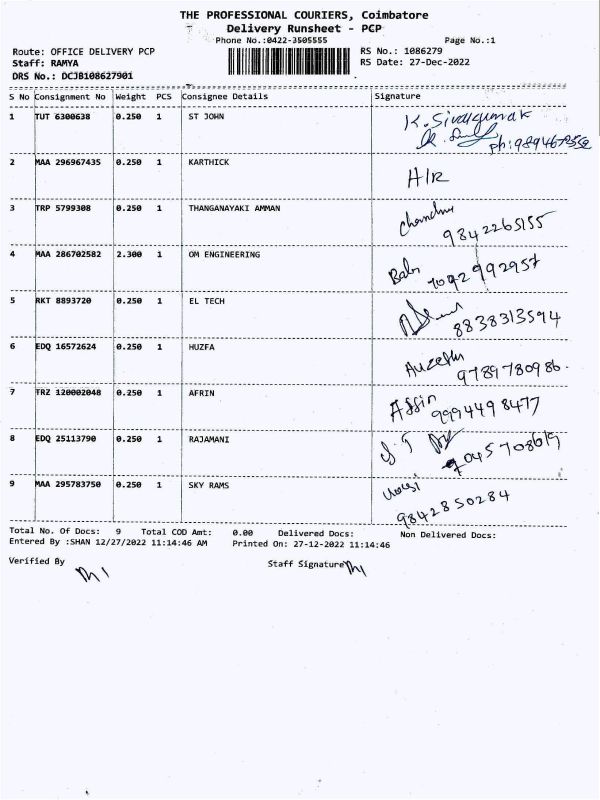 THE PROFESSIONAL COURIERS, Coimbatore
Delivery Runsheet - PCP
Phone No.:0422-3505555 Page No.:1
Route: OFFICE DELIVERY PCP RS No.: 1086279
Staff: RAMYA RS Date: 27-Dec-2022
DRS No.: DCJB108627901
S No Consignment No Weight PCS Consignee Details Signature
1 TUT 6300638 0.250 1 ST JOHN K. Sivakumar
ph: 9894679552
2 MAA 296967435 0.250 1 KARTHICK H/R
3 TRP 5799308 0.250 1 THANGANAYAKI AMMAN
9842265155
4 MAA 286702582 2.300 1 OM ENGINEERING Babu
7092992957
5 RKT 8893720 0.250 1 EL TECH
8838313594
6 EDQ 16572624 0.250 1 HUZFA
9789780986.
7 TRZ 120002048 0.250 1 AFRIN Affin
9994498477
8 EDQ 25113790 0.250 1 RAJAMANI
9045708619
9 MAA 295783750 0.250 1 SKY RAMS
9842850284
Total No. Of Docs: 9 Total COD Amt: 0.00 Delivered Docs: Non Delivered Docs:
Entered By :SHAN 12/27/2022 11:14:46 AM Printed On: 27-12-2022 11:14:46
Verified By Staff Signature